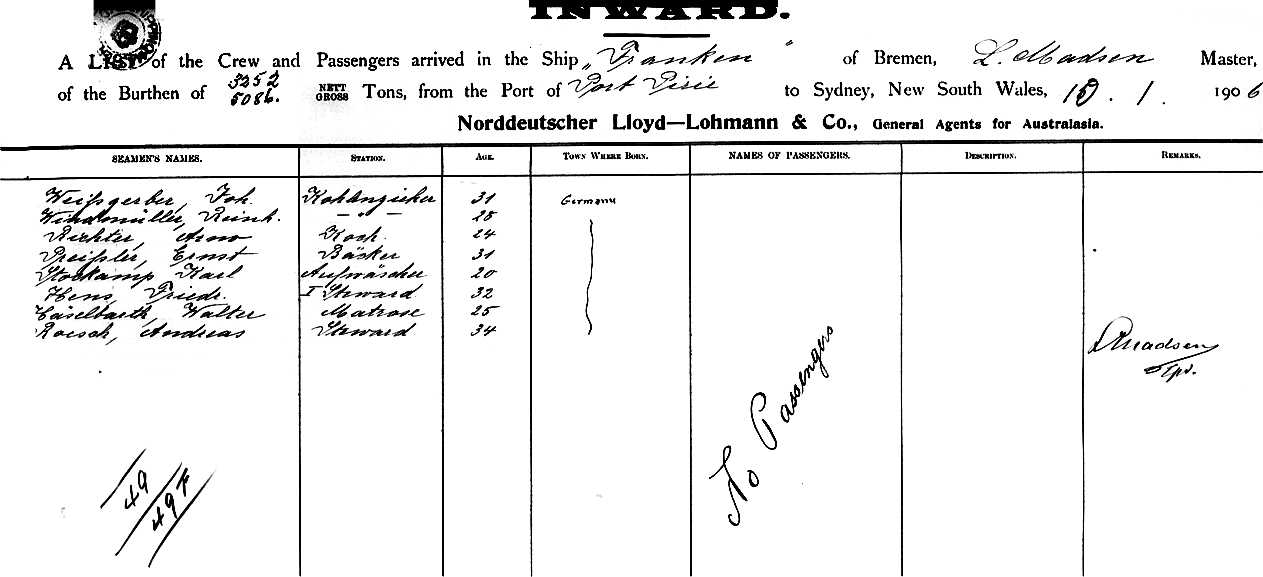 INWARD.
A LIST of the Crew and Passengers arrived in the Ship „Franken" of Bremen, L. Madsen Master,
of the Burthen of 3252 5086. NETT GROSS Tons, from the Port of Port Pirie to Sydney, New South Wales, 1. 1906
Norddeutscher Lloyd—Lohmann & Co., General Agents for Australasia.
SEAMEN'S NAMES. STATION. AGE. TOWN WHERE BORN. NAMES OF PASSENGERS. DESCRIPTION. REMARKS.
Weißgerber, Joh. Kohlenzieher 31 Germany
Windmüller, Reinh. – „ – 25
Richter, Arno Koch 24
Preißler, Ernst Bäcker 31
Stockamp Karl Aufwäscher 20
Hens, Friedr. I Steward 32
Walter Matrose 25
Roesch, Andreas Steward 34
LMadsen
No Passengers
49
497